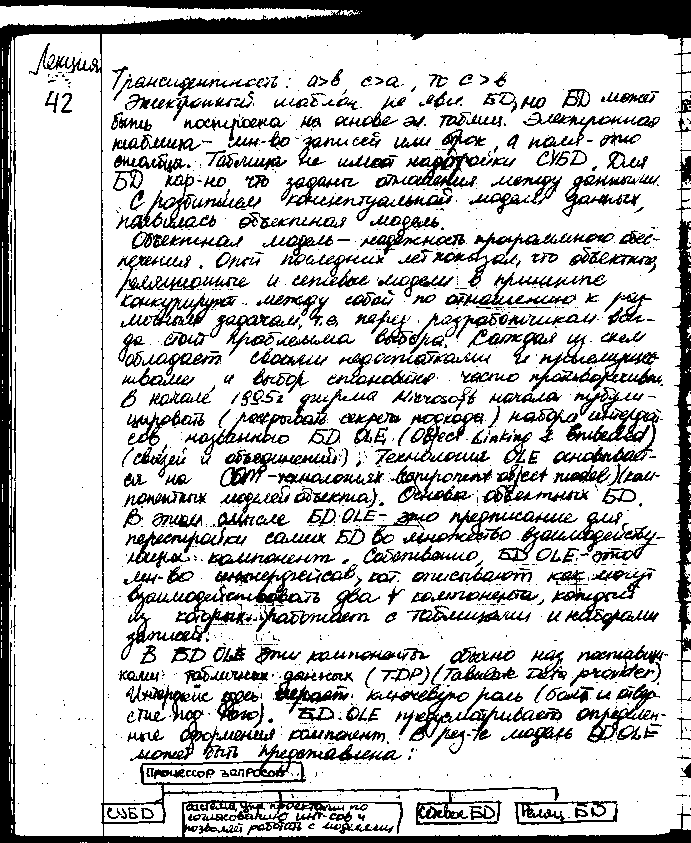 Лекция
42
Транзидентность: a>b, c>a, то c>b
Электронный шаблон не явл. БД, но БД может
быть построена на основе эл. таблиц. Электронная
таблица – мн-во записей или строк, а поля – это
столбцы. Таблица не имеет надстройки СУБД. Для
БД хар-но что заданы отношения между данными.
С развитием концептуальной модели данных,
появилась объектная модель.
Объектная модель – надёжность программного обес-
печения. Опыт последних лет показал, что объектные,
реляционные и сетевые модели в принципе
конкурируют между собой по отношению к раз-
личным задачам, т.е. перед разработчиком всег-
да стоит проблемма выбора. Каждая из схем
обладает своими недостатками и преимущес-
твами, и выбор становится часто противоречивым.
В начале 1995г фирма Microsoft начала публи-
цировать (раскрывать секреты подхода) набора интерфей-
сов, названного БД OLE (Object Linking & Embeded)
(связей и объединений). Технология OLE основывает-
ся на COM-технологиях component object model) (ком-
понентных моделей объекта). Основа объектных БД.
В этом смысле БД OLE – это предписание для
перестройки самих БД во множество взаимодейству-
ющих компонент. Собственно, БД OLE – это
мн-во интерфейсов, кот. описывают как могут
взаимодействовать два компонента, каждый
из которых работает с таблицами и наборами
записей.
В БД OLE эти компоненты обычно наз поставщи-
ками табличных данных (TDP) (Tabular Data provider)
Интерфейс здесь играет ключевую роль (болт и отвер-
стие под него). БД OLE предусматривает определен-
ные оформления компонент. В рез-те модель БД OLE
может быть представлена:
Процессор запросов
СУБД
система для проектации по
согласованию инт-сов и
позволяет работать с моделями
Сетевые БД
Реляц. БД